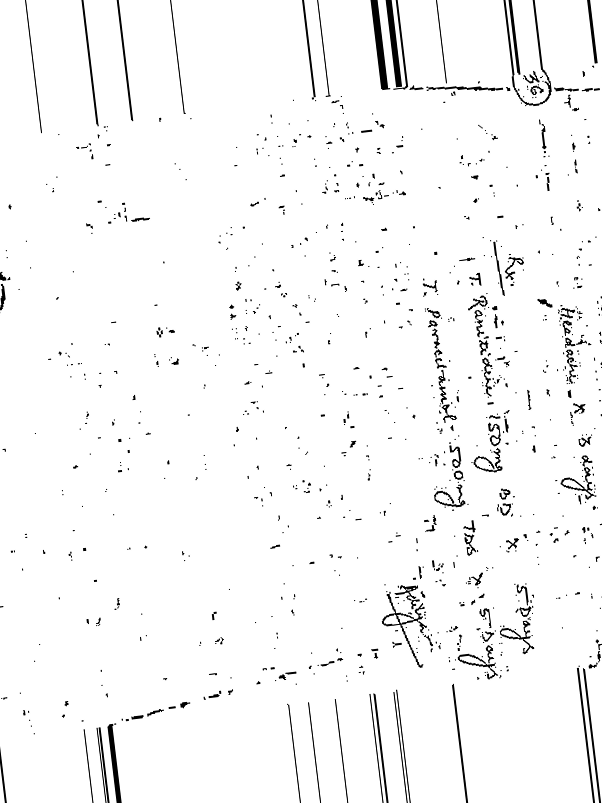 36
Headache - x 3 days.
Rx.
T. Ranitidine 150mg BD x 5 Days
T. Paracetamol - 500mg TDS x 5 Days